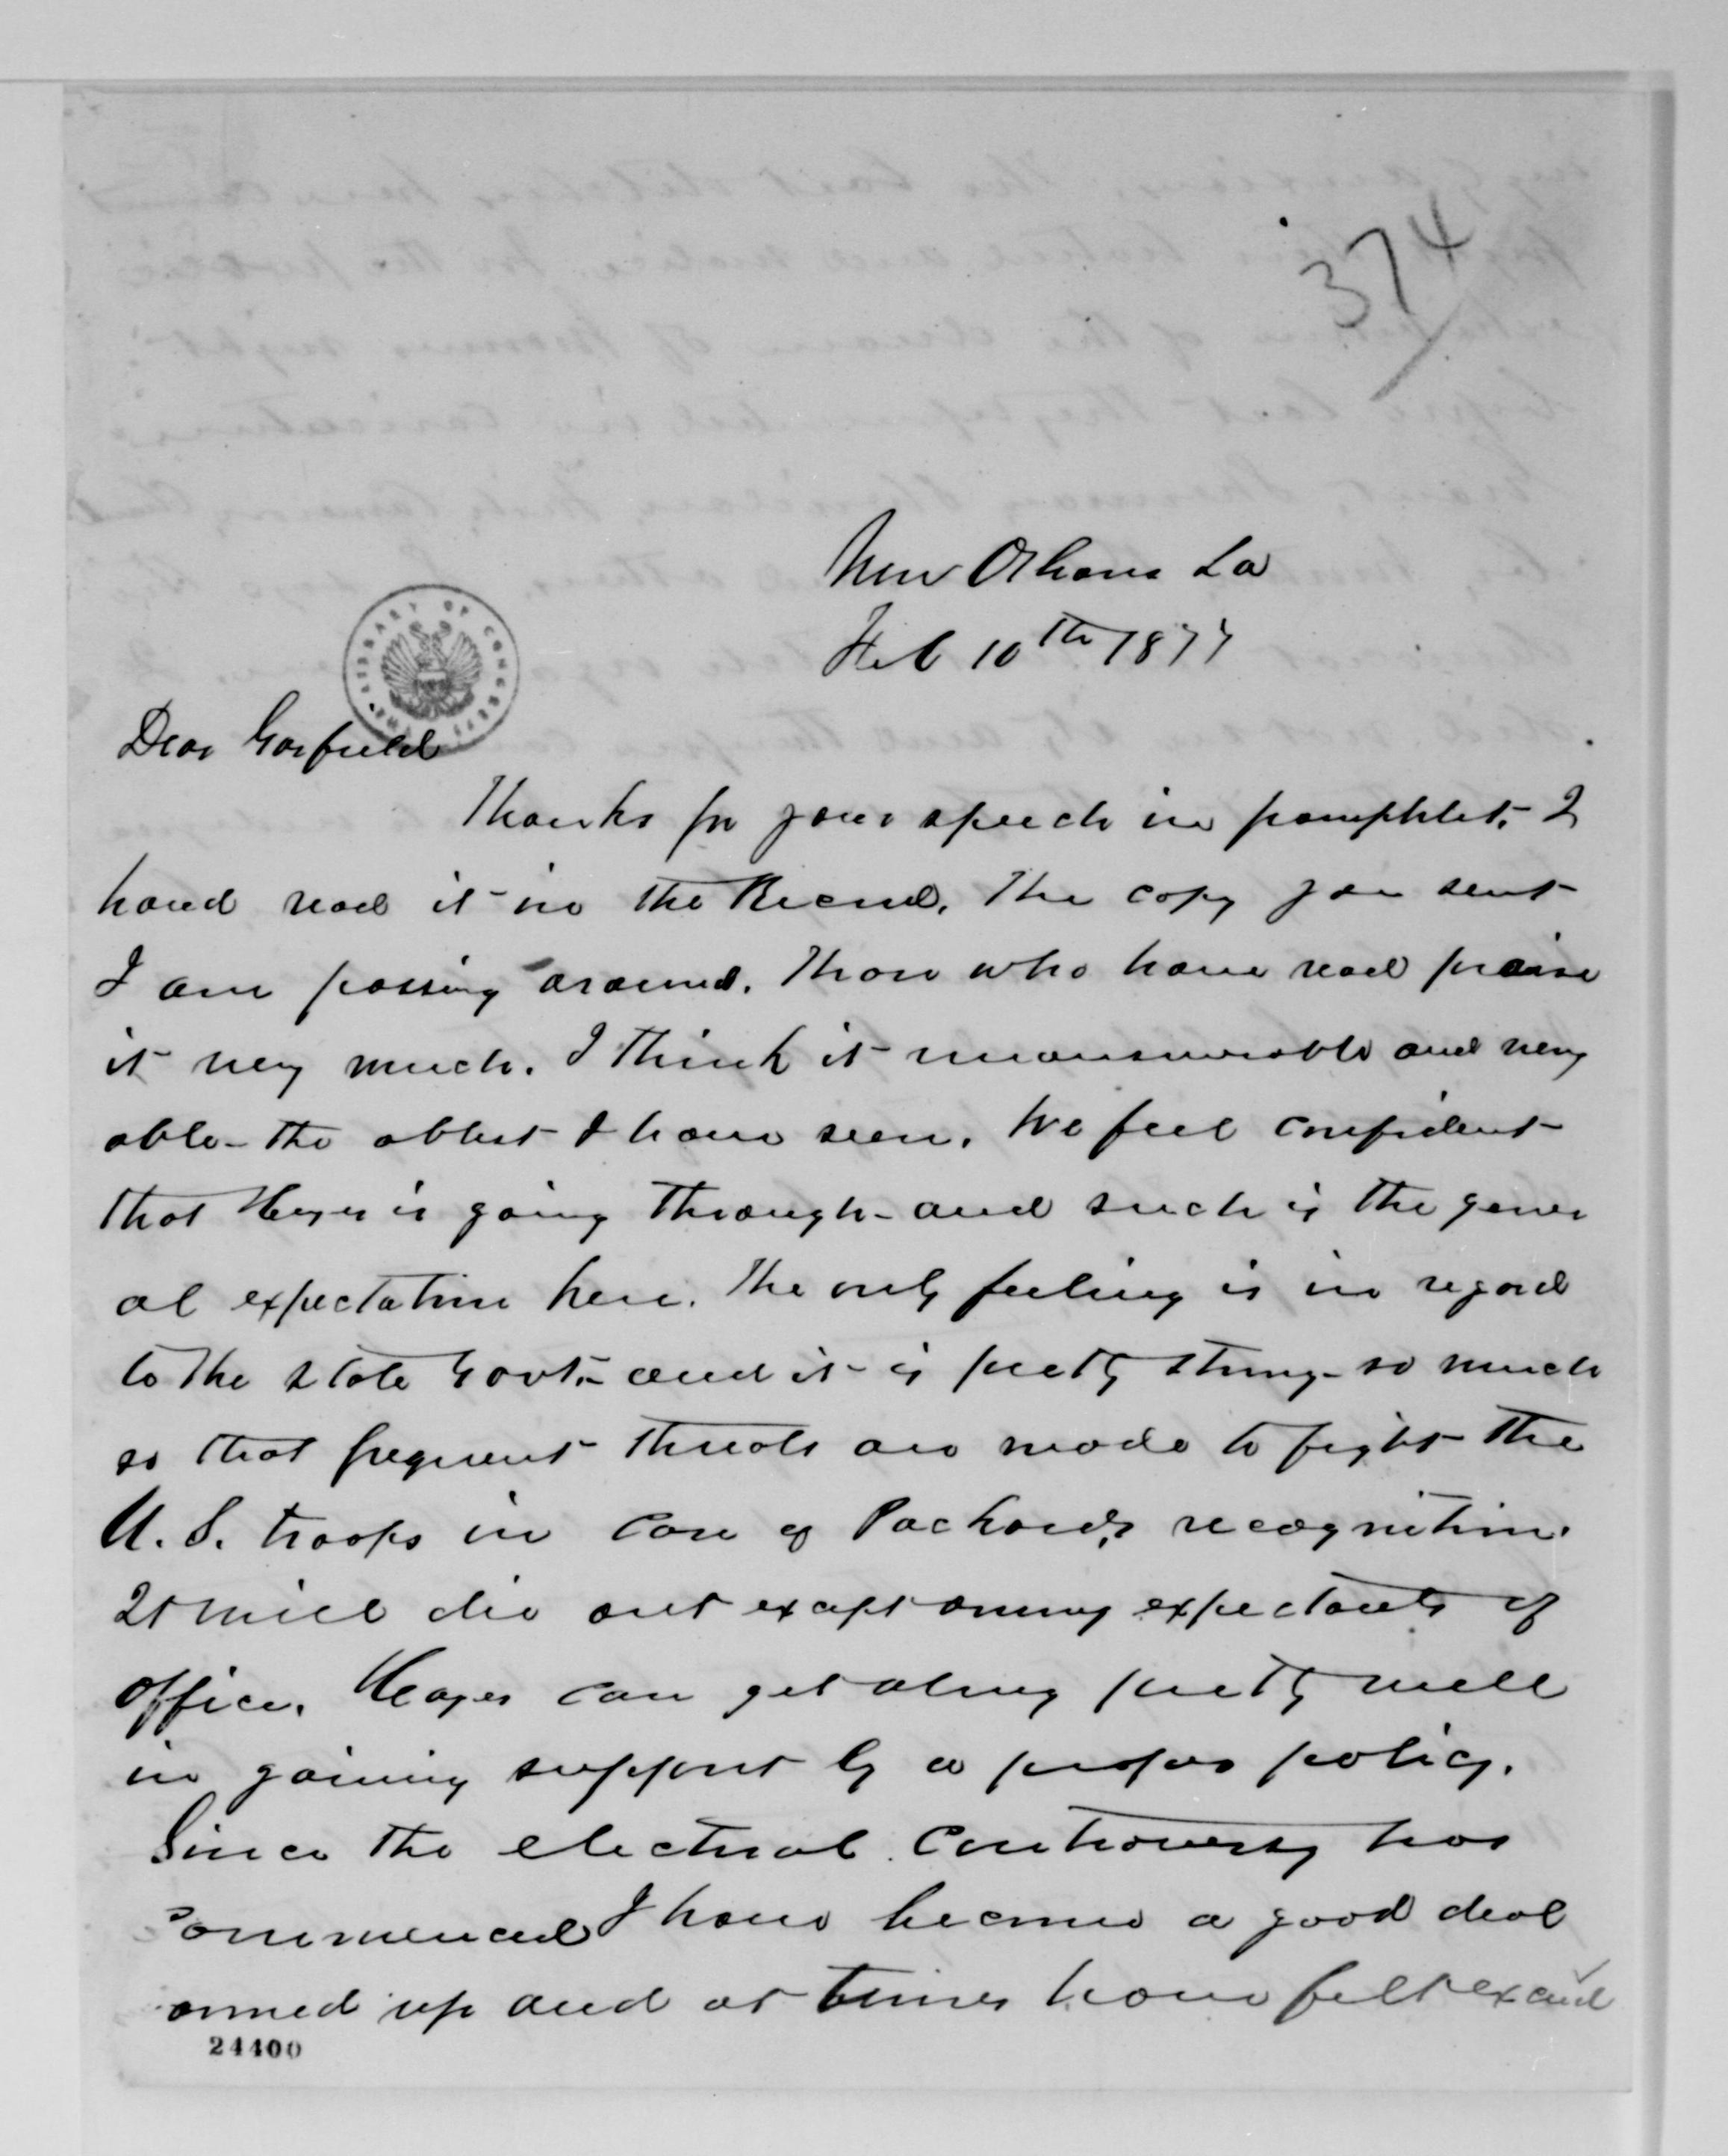 374
New Orleans La
Feb 10th 1877
LIBRARY OF CONGRESS
Dear Garfield
Thanks for your speech in pamphlet. I
had read it in the Record. The copy you sent
I am passing around. Those who have read praise
it very much. I think it unanswerable and very
able - the ablest I have seen. We feel confident
that Hayes is going through - and such is the gener
al expectation here. The only feeling is in regard
to the state Govt. - and it is pretty strong - so much
so that frequent threats are made to fight the
U. S. troops in case of Packard's recognition.
It will die out except among expectants of
office. Hayes can get along pretty well
in gaining support by a proper policy.
Since the electoral controversy has
commenced I have become a good deal
up and at times have felt
24400